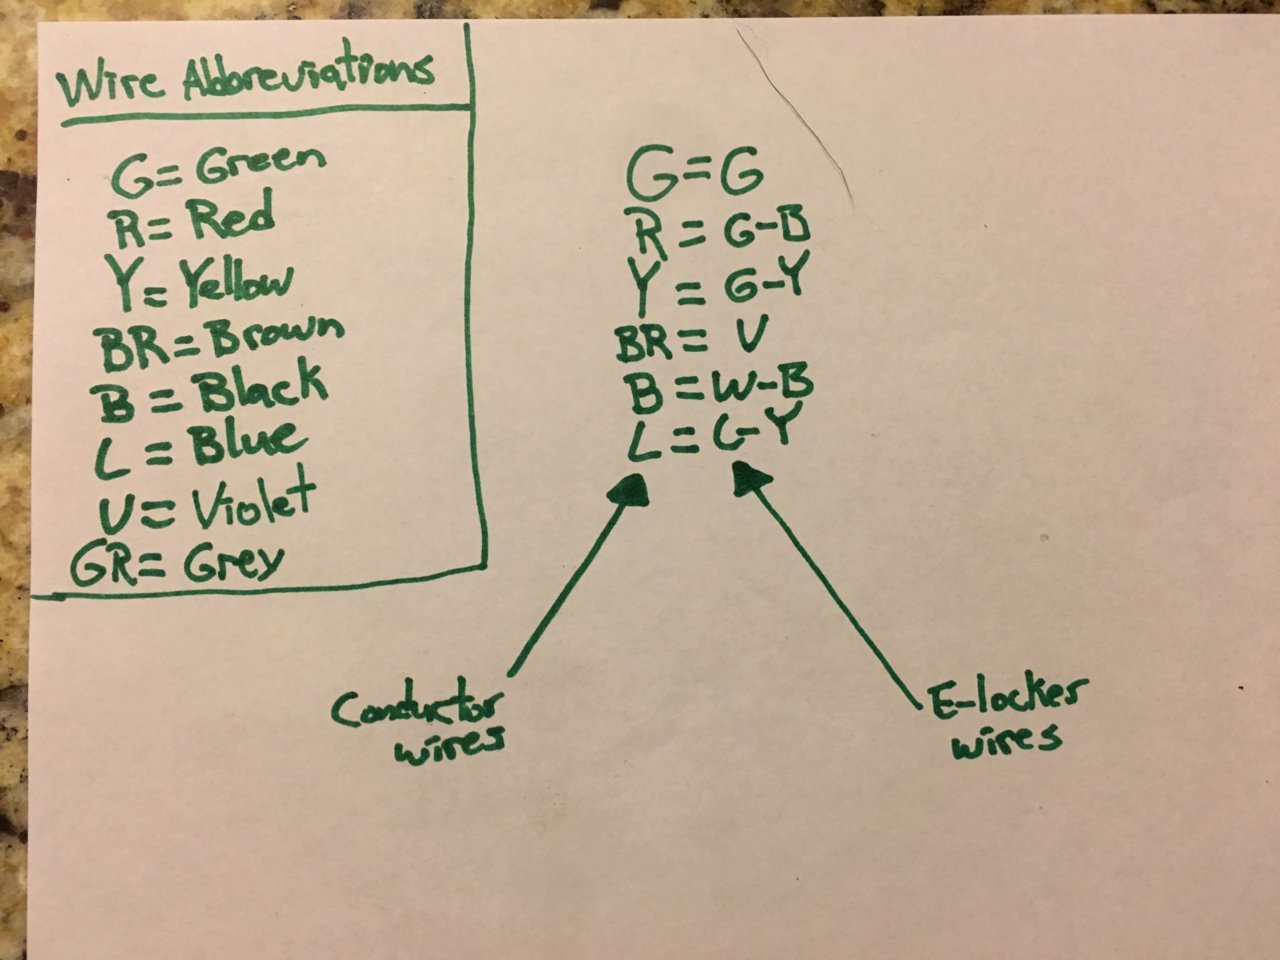 Wire Abbreviations
G= Green
R= Red
Y= Yellow
BR= Brown
B = Black
L = Blue
V= Violet
GR= Grey
G=G
R = G-B
Y = G-Y
BR= V
B =W-B
L = L-Y
Conductor
wires
E-locker
wires